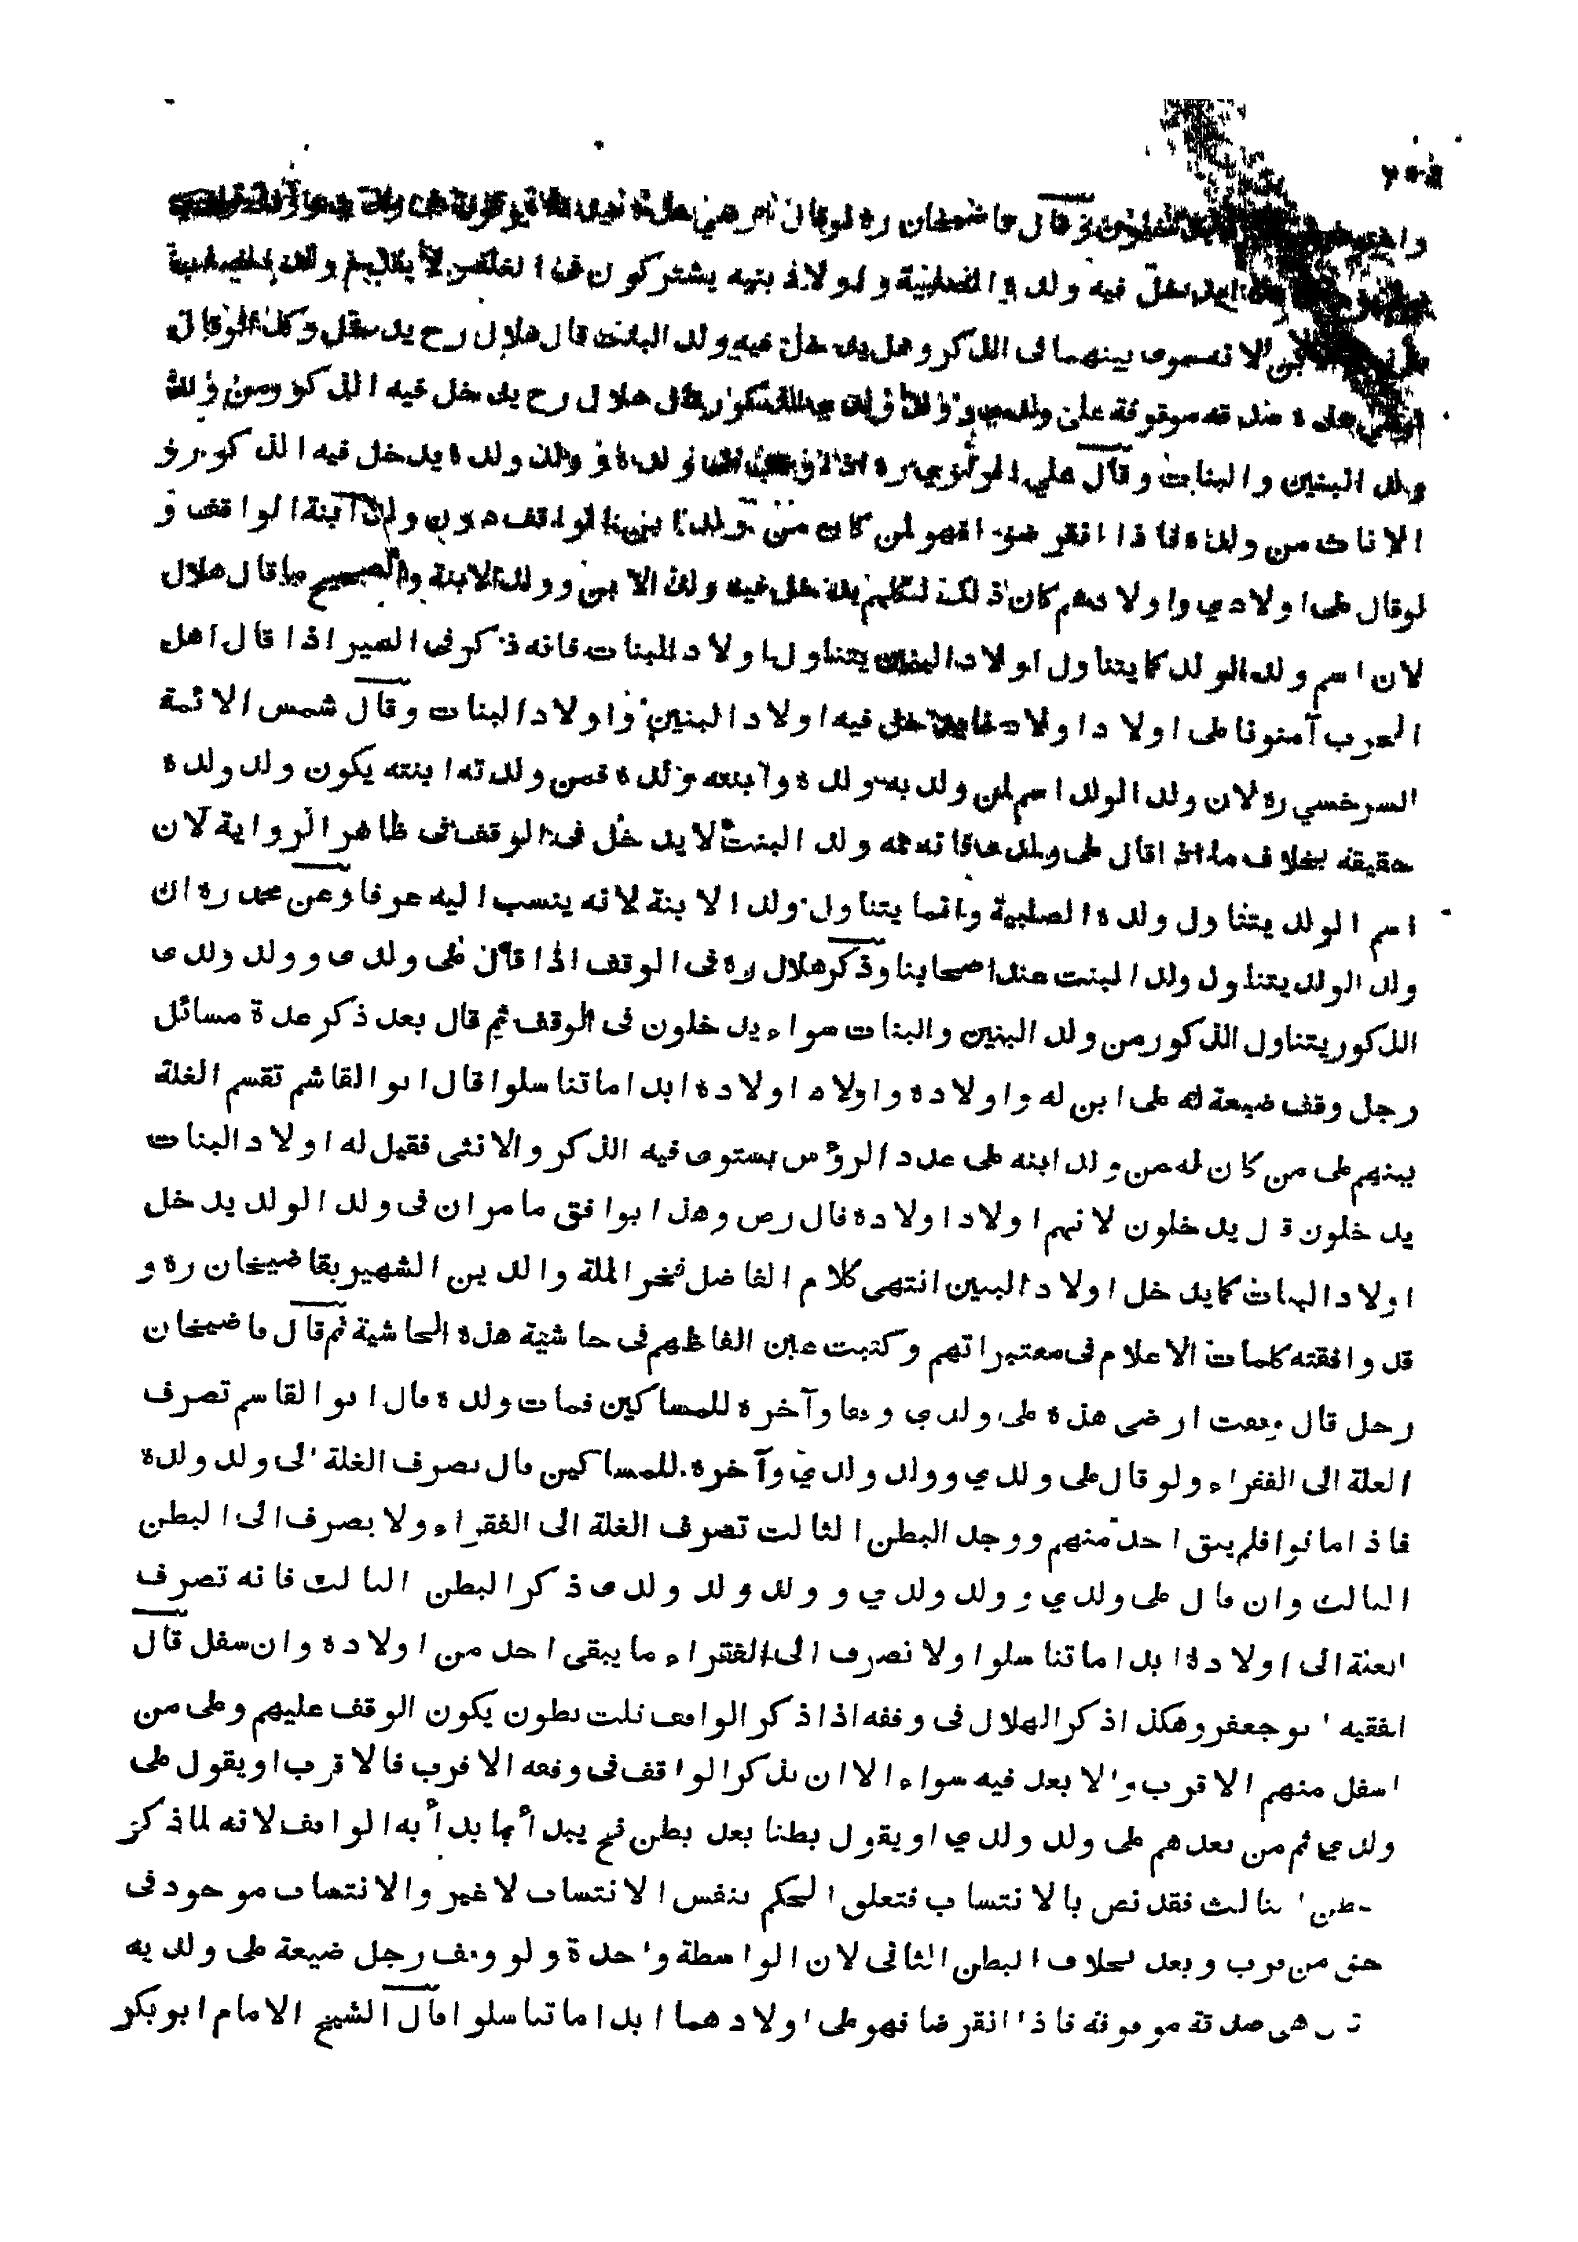 قال قاضيخان ره لو قال ارضي هذه
يدخل فيه ولده الصلبية واولاد بنيه يشتركون في الغلة
لانه سوى بينهما في الذكر وهل يدخل فيه ولد البنت قال هلال رح يدخل وكذا لو قال
هذه صدقة موقوفة على ولدي وولد ولدي الذكور قال هلال رح يدخل فيه الذكور من ولد
ولد البنين والبنات وقال علي الرازي ره ولده وولد ولده يدخل فيه الذكور و
الاناث من ولده فاذا انقرضوا فهو لمن كان من ولد ابن الواقف دون ولد ابنة الواقف و
لو قال على اولادي واولادهم كان ذلك لكلهم يدخل فيه ولد الابن وولد الابنة والصحيح ما قال هلال
لان اسم ولد الولد كما يتناول اولاد البنين يتناول اولاد البنات فانه ذكر في السير اذا قال اهل
الحرب آمنونا على اولاد اولادنا يدخل فيه اولاد البنين واولاد البنات وقال شمس الائمة
السرخسي ره لان ولد الولد اسم لمن ولد به ولده وابنته ولده فمن ولدته ابنته يكون ولد ولده
حقيقة بخلاف ما اذا قال على ولدى فانه ثمه ولد البنت لا يدخل في الوقف في ظاهر الرواية لان
اسم الولد يتناول ولده الصلبية وانما يتناول ولد الابنة لانه ينسب اليه عرفا وعن محمد ره ان
ولد الولد يتناول ولد البنت عند اصحابنا وذكر هلال ره في الوقف اذا قال على ولدى وولد ولدى
الذكور يتناول الذكور من ولد البنين والبنات سواء يدخلون في الوقف ثم قال بعد ذكر عدة مسائل
رجل وقف ضيعة له على ابن له واولاده واولاد اولاده ابدا ما تناسلوا قال ابو القاسم تقسم الغلة
بينهم على من كان له من ولد ابنه على عدد الرؤس يستوى فيه الذكر والانثى فقيل له اولاد البنات
يدخلون قال يدخلون لانهم اولاد اولاده قال رض وهذا يوافق ما مر ان في ولد الولد يدخل
اولاد البنات كما يدخل اولاد البنين انتهى كلام الفاضل فخر الملة والدين الشهير بقاضيخان ره و
قد وافقته كلمات الاعلام في معتبراتهم وكتبت عين الفاظهم في حاشية هذه الحاشية ثم قال قاضيخان
رجل قال وقفت ارضى هذه على ولدي وقفا وآخره للمساكين فمات ولده قال ابو القاسم تصرف
الغلة الى الفقراء ولو قال على ولدي وولد ولدي وآخره للمساكين قال تصرف الغلة الى ولد ولده
فاذا ماتوا فلم يبق احد منهم ووجد البطن الثالث تصرف الغلة الى الفقراء ولا يصرف الى البطن
الثالث وان قال على ولدي وولد ولدي وولد ولد ولدى ذكر البطن الثالث فانه تصرف
الغلة الى اولاده ابدا ما تناسلوا ولا تصرف الى الفقراء ما يبقى احد من اولاده وان سفل قال
الفقيه ابو جعفر وهكذا ذكر الهلال في وقفه اذا ذكر الواقف ثلث بطون يكون الوقف عليهم وعلى من
اسفل منهم الاقرب والابعد فيه سواء الا ان يذكر الواقف في وقفه الاقرب فالاقرب او يقول على
ولدي ثم من بعدهم على ولد ولدي او يقول بطنا بعد بطن فح يبدأ بما بدأ به الواقف لانه لما ذكر
بطن الثالث فقد نص بالانتساب فتعلق الحكم بنفس الانتساب لا غير والانتساب موجود في
حق من قرب وبعد بخلاف البطن الثاني لان الواسطة واحدة ولو وقف رجل ضيعة على ولديه
هى صدقة موقوفة فاذا انقرضا فهو على اولادهما ابدا ما تناسلوا قال الشيخ الامام ابو بكر